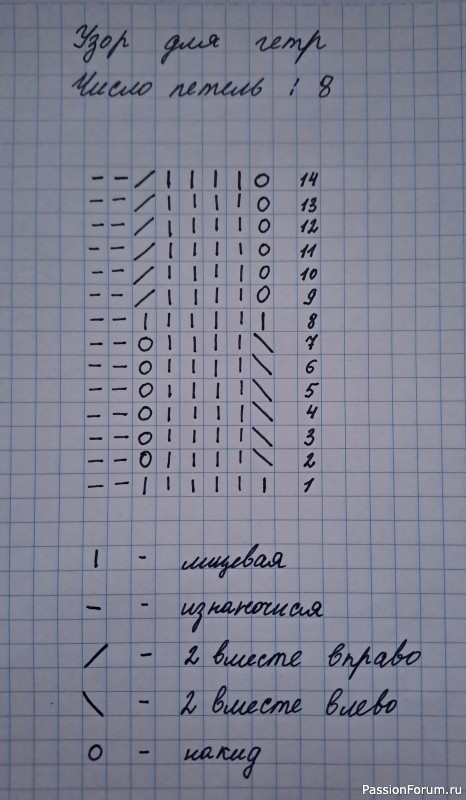 Узор для гетр
Число петель : 8
– – / | | | | o 14
– – / | | | | o 13
– – / | | | | o 12
– – / | | | | o 11
– – / | | | | o 10
– – / | | | | o 9
– – | | | | | | 8
– – o | | | | \ 7
– – o | | | | \ 6
– – o | | | | \ 5
– – o | | | | \ 4
– – o | | | | \ 3
– – o | | | | \ 2
– – | | | | | | 1
| - лицевая
– - изнаночися
/ - 2 вместе вправо
\ - 2 вместе влево
o - накид
PassionForum.ru